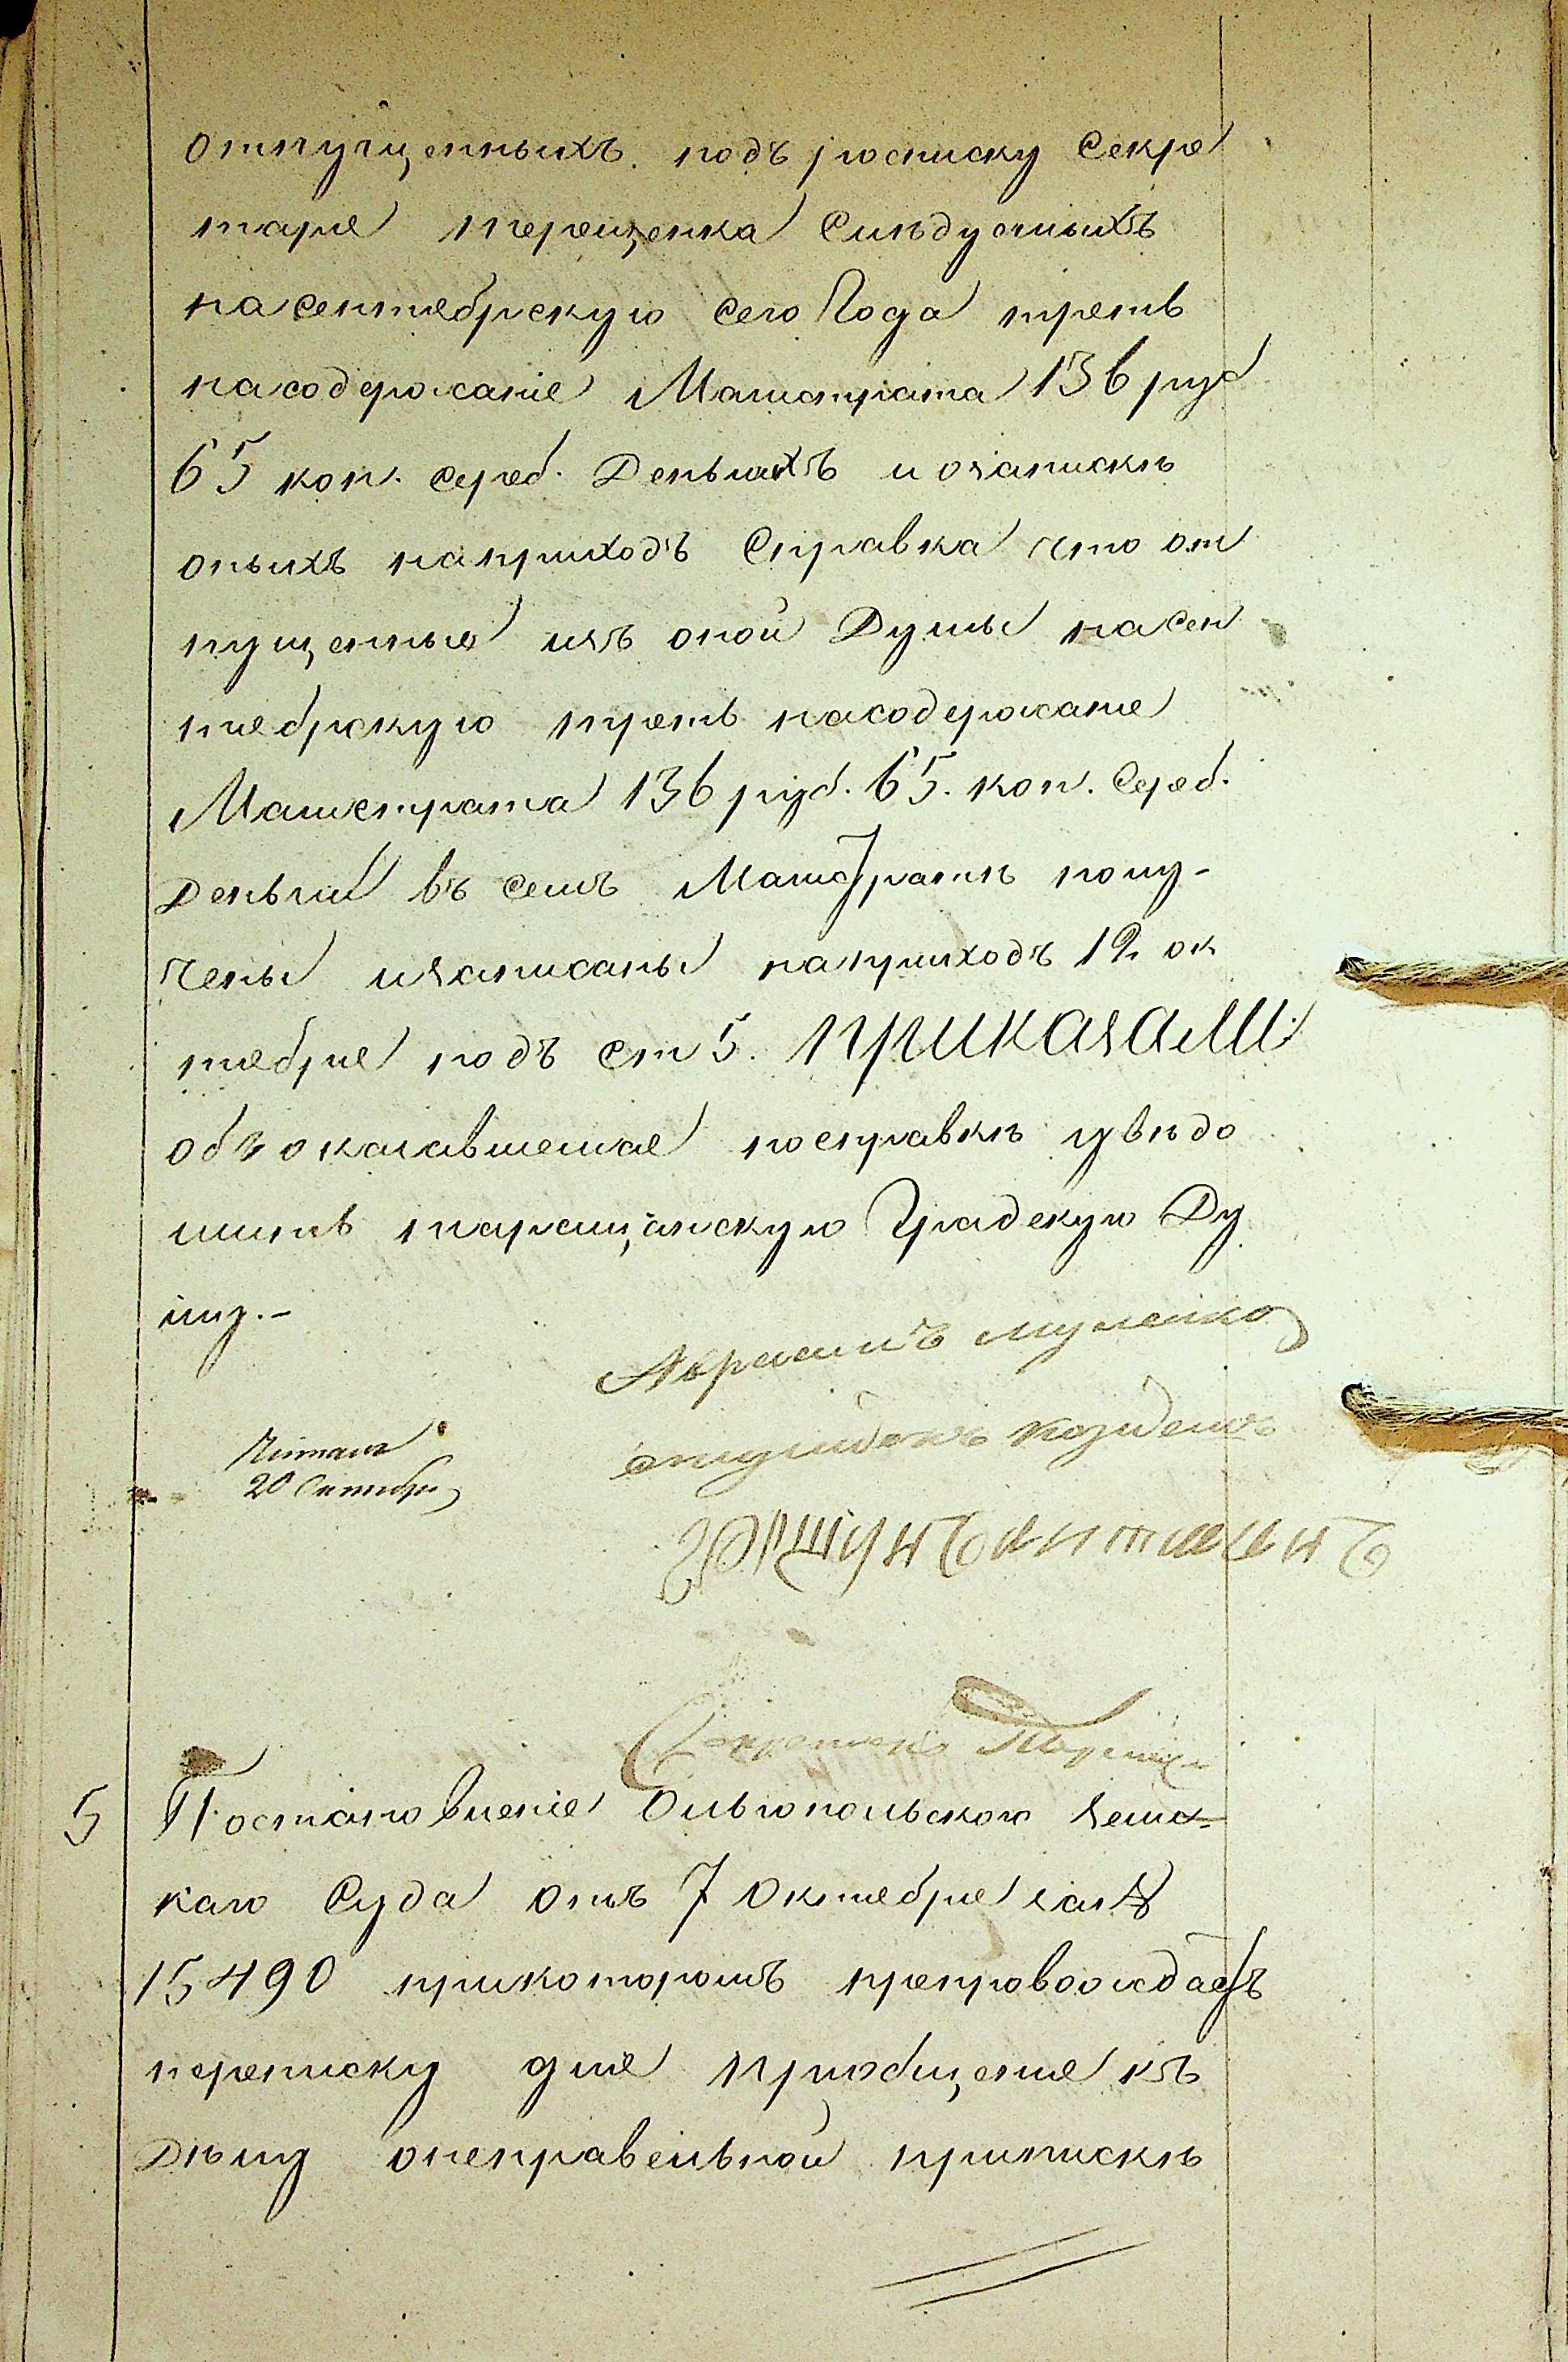 отпущенныхъ подъ росписку Секре
таря Терещенка Слѣдуемыхъ
на сентябрскую сего Года треть
на содержаніе Магистрата 136 руб
65 коп. сереб. Деньгахъ и озапискѣ
оныхъ наприходъ Справка что от
пущенные изъ оной Думы на Сен
тябрскую треть насодержаніе
Магистрата 136 руб. 65. коп. Сереб.
Деньги въ семъ Магистратѣ полу-
чены изаписаны наприходъ 12 ок
тября подъ ст 5. Приказали
объ оказавшемся посправкѣ увѣдо
мить таращанскую Градскую Ду
му.-
Читалъ
20 Октября
Секретарь
5 Постановленіе Ольгопольского Земс-
каго Суда отъ 7 Октября за №
15490 прикоторомъ препровождаетъ
переписку для пріобщенія къ
Дѣлу онеправельной припискѣ